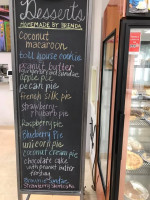 Desserts
HOMEMADE BY BRENDA
Coconut
macaroon
toll house cookie
peanut butter
apple pie
pecan pie
french silk pie
strawberry-
rhubarb pie
Raspberry pie
Blueberry Pie
unicorn pie
coconut cream pie
chocolate cake
with peanut butter
frosting
Strawberry shortcake